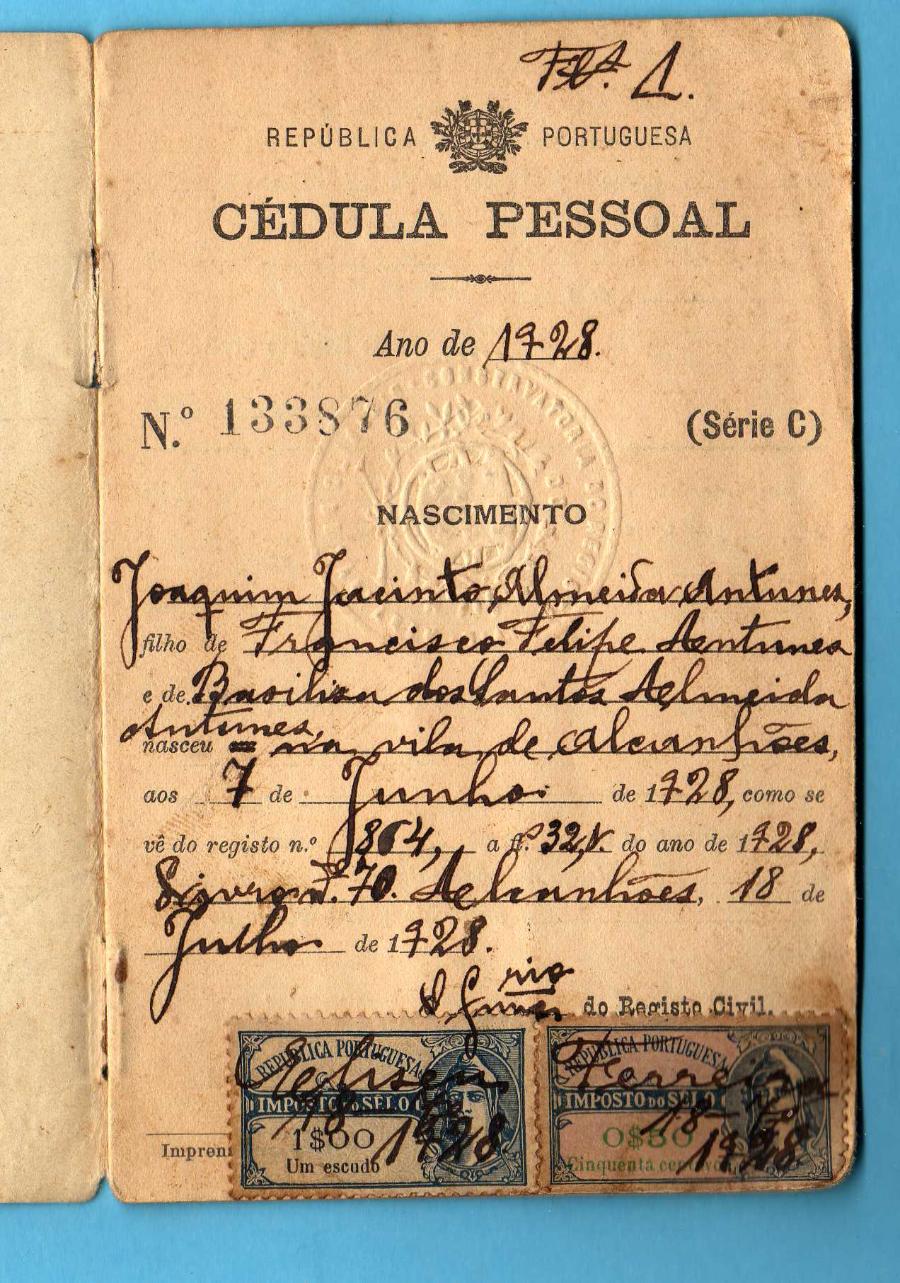 Fls. 1.
REPÚBLICA PORTUGUESA
CÉDULA PESSOAL
Ano de 1928.
N.º 133876 (Série C)
NASCIMENTO
Joaquim Jacinto Almeida Antunes,
filho de Francisco Felipe Antunes
e de Basilisa dos Santos Almeida
Antunes,
nasceu na vila de Alcanhões,
aos 7 de Junho de 1928, como se
vê do registo n.º 864, a fl.s 32,v. do ano de 1928,
Livro n.º 70. Alcanhões, 18 de
Julho de 1928.
do Registo Civil.
REPÚBLICA PORTUGUESA REPÚBLICA PORTUGUESA
IMPOSTO DO SÊLO IMPOSTO DO SÊLO
Ferreira
1$00 0$50
Um escudo Cinquenta centavos
1928 1928
Impren